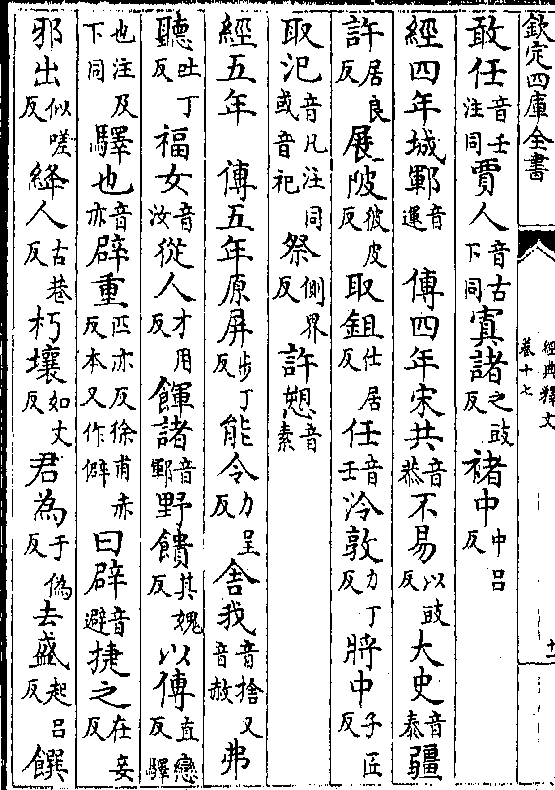 欽定四庫全書
經典釋文
卷十七
敢任音壬注同賈人音古下同寘諸之豉反褚中中呂反
經四年城鄆音運 傳四年宋共音恭不易以豉反大史音泰疆
許居良反展陂彼皮反取鉏仕居反任音壬泠敦力丁反將中子匠反
取汜音凡注同或音祀祭側界反許愬音素
經五年 傳五年原屏步丁反能令力呈反舍我音捨又音赦弗
聽吐丁反福女音汝從人才用反餫諸音鄆野饋其媿反以傳直戀反驛
也注及下同驛也音亦辟重匹亦反徐甫赤反本又作僻曰辟音避捷之在妾反
邪出似嗟反絳人古巷反朽壤如丈反君為于偽反去盛起呂反饌